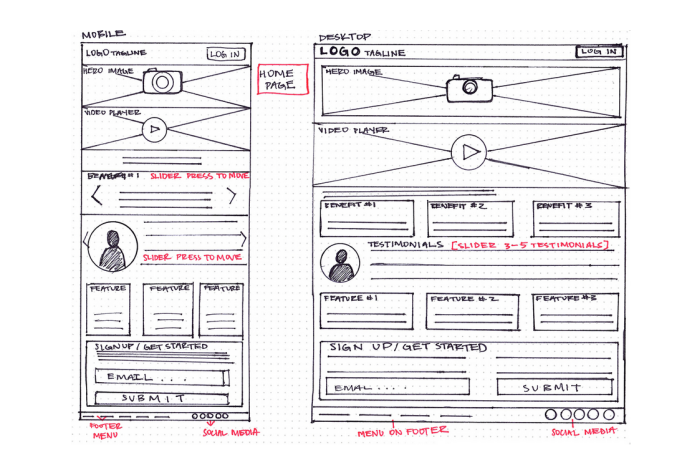 MOBILE
LOGO TAGLINE
LOG IN
HERO IMAGE
VIDEO PLAYER
BENEFIT #1 SLIDER PRESS TO MOVE
SLIDER PRESS TO MOVE
FEATURE FEATURE FEATURE
SIGN UP/GET STARTED
EMAIL...
SUBMIT
FOOTER
MENU
SOCIAL MEDIA
HOME
PAGE
DESKTOP
LOGO TAGLINE
LOG IN
HERO IMAGE
VIDEO PLAYER
BENEFIT #1 BENEFIT #2 BENEFIT #3
TESTIMONIALS [SLIDER 3-5 TESTIMONIALS]
FEATURE #1 FEATURE #2 FEATURE #3
SIGN UP/GET STARTED
EMAL....
SUBMIT
MENU ON FOOTER
SOCIAL MEDIA